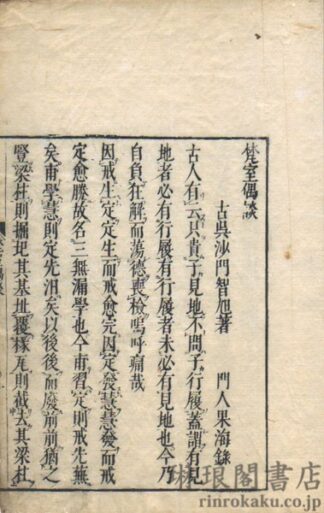 梵室偶談
古吳沙門智旭著 門人果海錄
古人有云只貴子見地不問子行履蓋謂有見
地者必有行履有行履者未必有見地也今乃
自負狂解而蕩德喪檢嗚呼痛哉
因戒生定定生而戒愈完因定發慧慧發而戒
定愈勝故名三無漏學也今甫習定則戒先蕪
矣甫學慧則定先汨矣以後後而廢前前猶之
豎梁柱則掘圮其基址覆椽瓦則截去其梁柱
琳琅閣書店
rinrokaku.co.jp